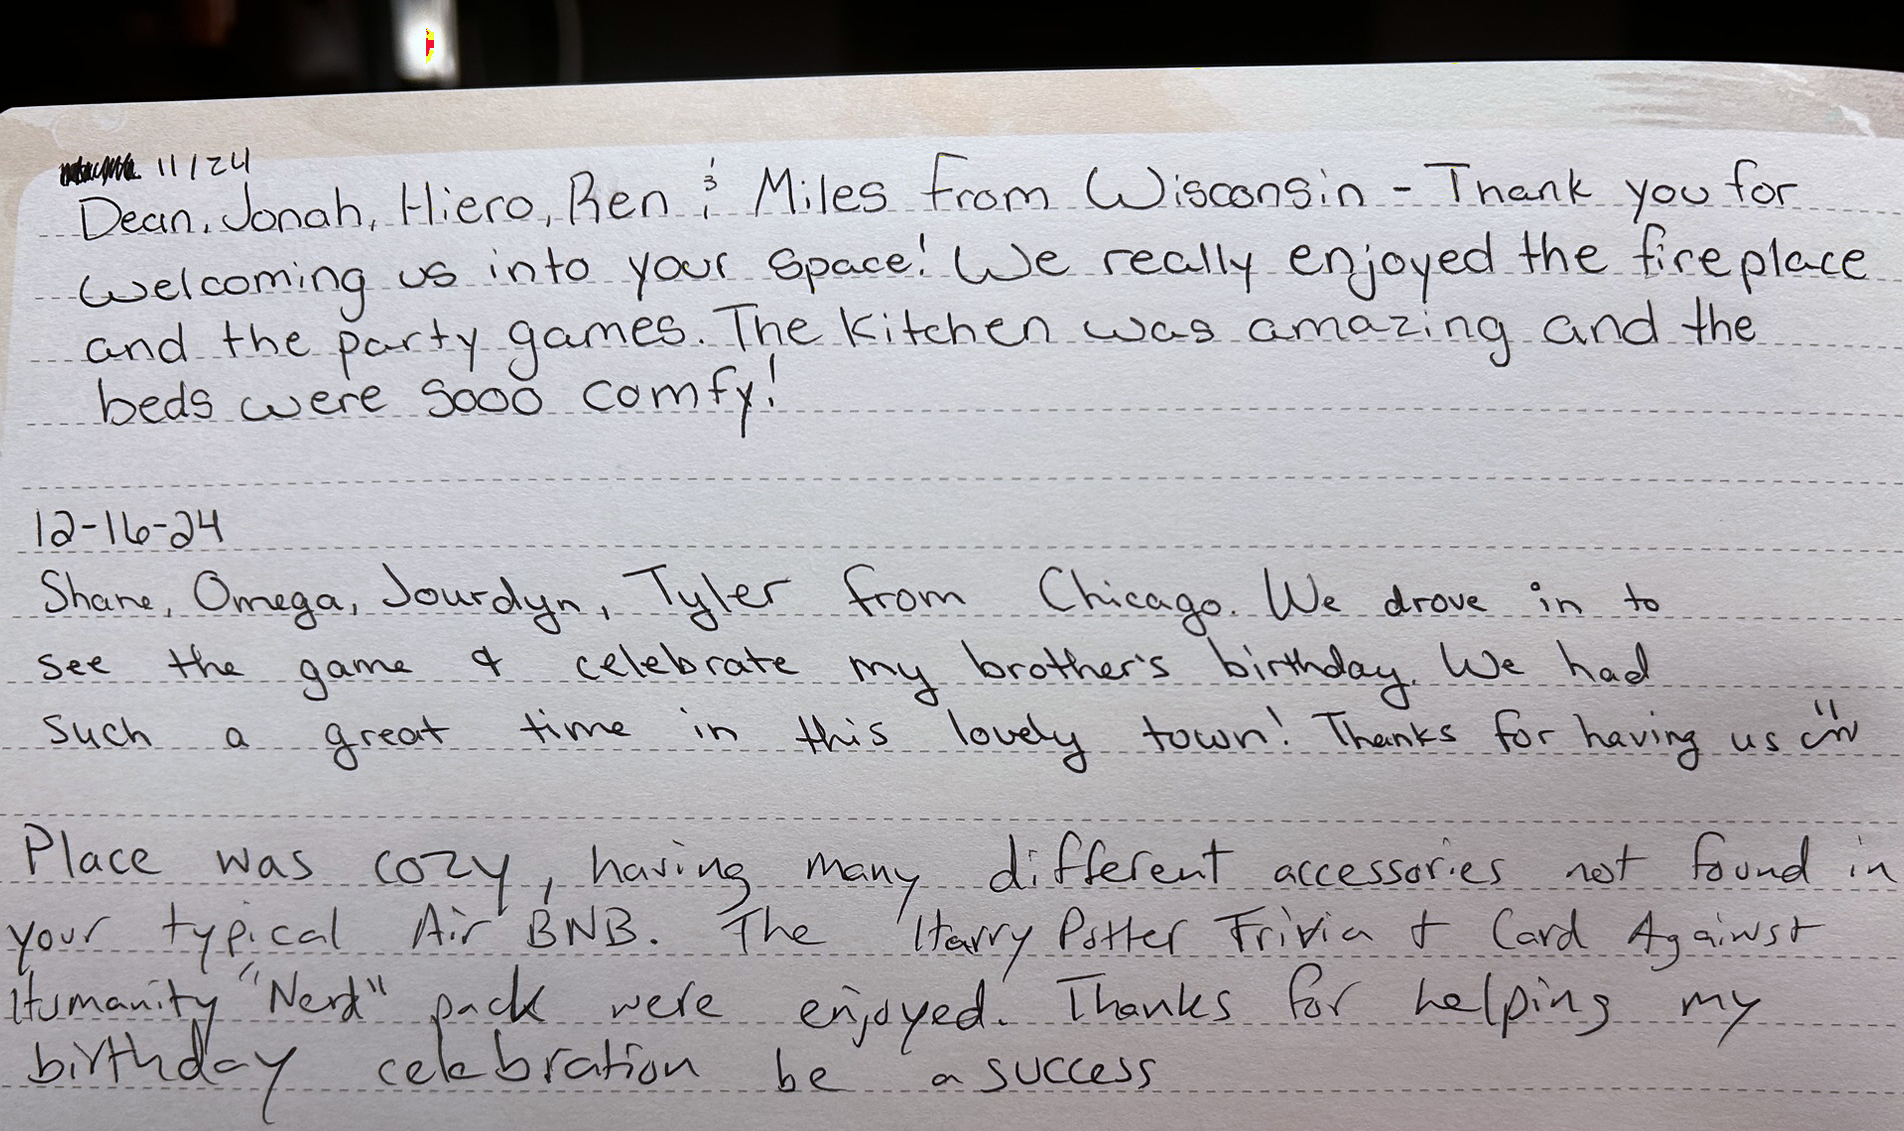 11/24
Dean, Jonah, Hiero, Ren & Miles from Wisconsin - Thank you for
welcoming us into your space! We really enjoyed the fireplace
and the party games. The kitchen was amazing and the
beds were sooo comfy!
12-16-24
Shane, Omega, Jourdyn, Tyler from Chicago. We drove in to
see the game & celebrate my brother's birthday. We had
such a great time in this lovely town! Thanks for having us
Place was cozy, having many different accessories not found in
your typical Air BNB. The Harry Potter Trivia + Card Against
Humanity "Nerd" pack were enjoyed. Thanks for helping my
birthday celebration be a success